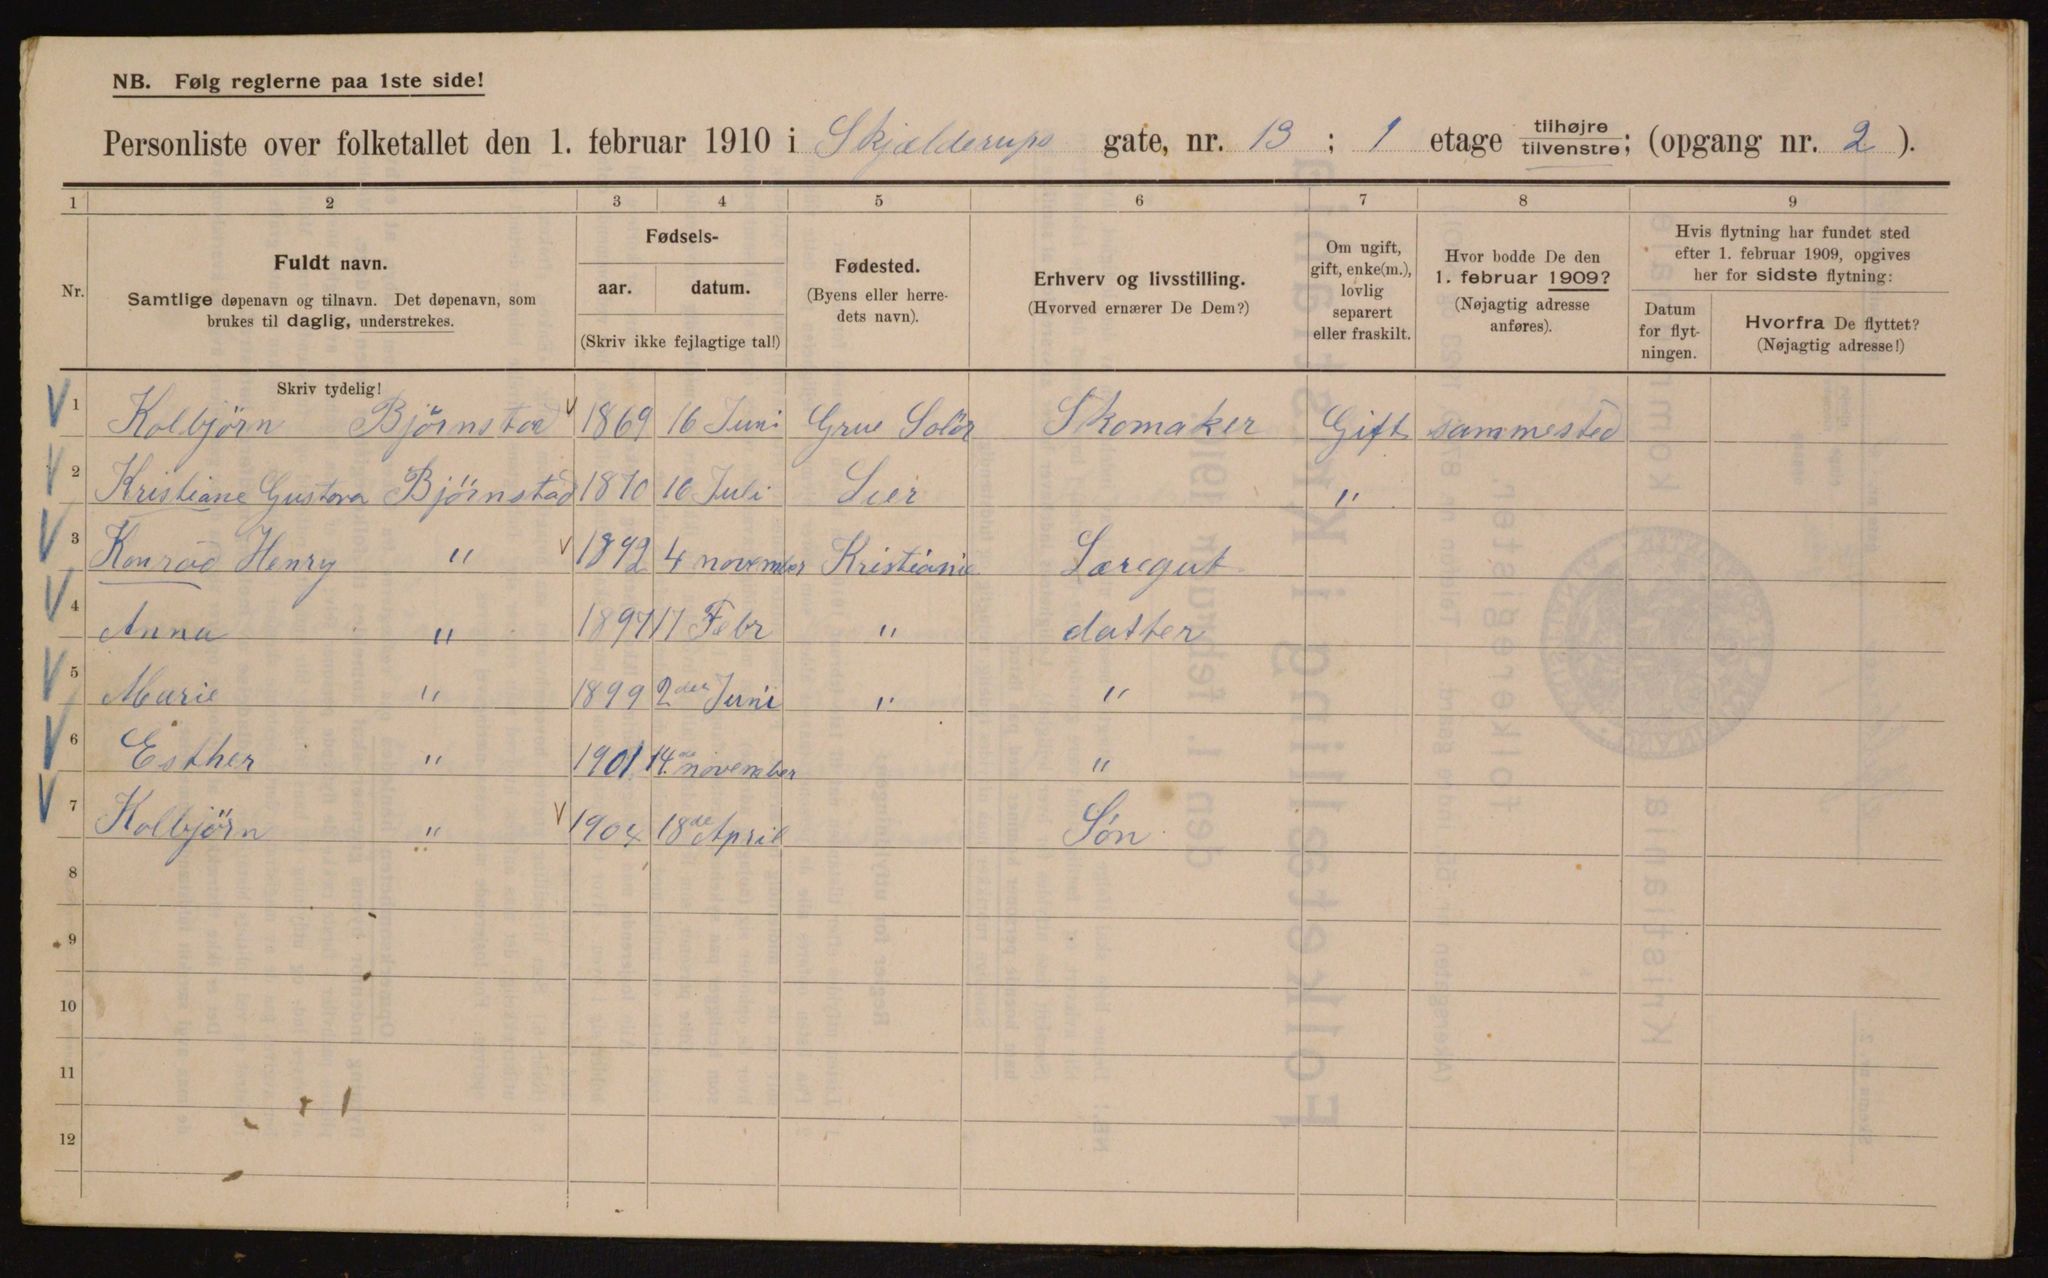 NB. Følg reglerne paa 1ste side!
Personliste over folketallet den 1. februar 1910 i Skjælderups gate, nr. 13 ; 1 etage tilhøjre tilvenstre; (opgang nr. 2 ).
1 2 3 4 5 6 7 8 9
Nr.
Fuldt navn.
Samtlige døpenavn og tilnavn. Det døpenavn, som
brukes til daglig, understrekes.
Fødsels-
aar. datum.
(Skriv ikke fejlagtige tal!)
Fødested.
(Byens eller herre-
dets navn).
Erhverv og livsstilling.
(Hvorved ernærer De Dem?)
Om ugift,
gift, enke(m.),
lovlig
separert
eller fraskilt.
Hvor bodde De den
1. februar 1909?
(Nøjagtig adresse
anføres).
Hvis flytning har fundet sted
efter 1. februar 1909, opgives
her for sidste flytning:
Datum
for flyt-
ningen.
Hvorfra De flyttet?
(Nøjagtig adresse!)
Skriv tydelig!
1 Kolbjörn Björnstad 1869 16 Juni Grue Solör Skomaker Gift sammested
2 Kristiane Gustava Bjørnstad 1870 16 Juli Lier "
3 Konrad Henry " 1892 4 november Kristiania Læregut
4 Anna " 1897 17 Febr " datter
5 Marie " 1899 2den Juni " "
6 Esther " 1901 14de november "
7 Kolbjörn " 1904 18de April Søn
8
9
10
11
12